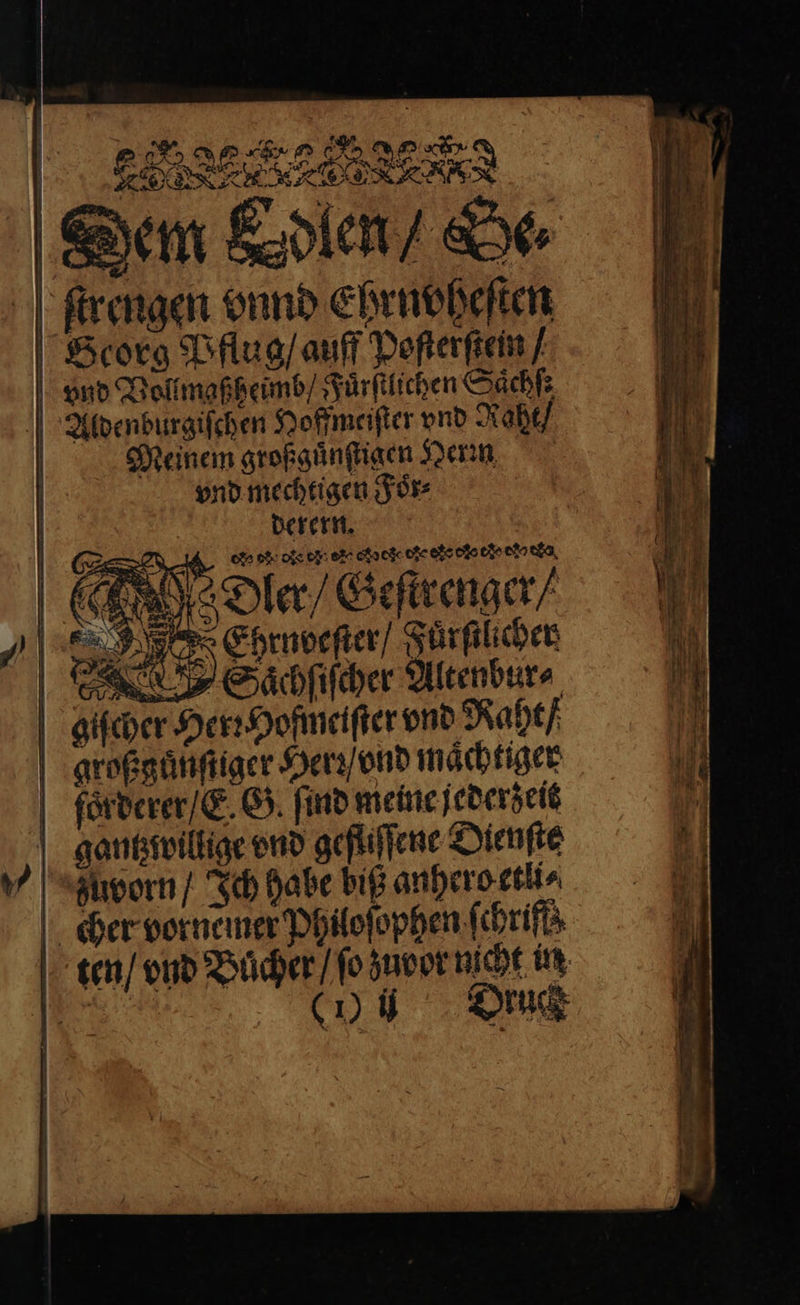 Dem Edlen / Ge⸗
ſtrengen vnnd Ehrnvheſten
Georg Pflug / auff Poſterſtein /
vnd Vollmaßheimb / Fuͤrſtlichen Saͤchſ⸗
Aldenburgiſchen Hoffmeiſter vnd Raht /
Meinem großguͤnſtigen Herꝛn
vnd mechtigen Foͤr⸗
derern.
EDler / Geſtrenger /
Ehrnveſter / Fuͤrſtlicher
Saͤchſiſcher Altenbur⸗
giſcher Herꝛ Hofmeiſter vnd Raht /
großguͤnſtiger Herꝛ / vnd maͤchtiger
foͤrderer / E. G. ſind meine jederzeit
gantzwillige vnd gefliſſene Dienſte
zuvorn / Ich habe biß anhero etli⸗
cher vornemer Philoſophen ſchriff⸗
ten / vnd Buͤcher / ſo zuvor nicht in
(1) ij Druck